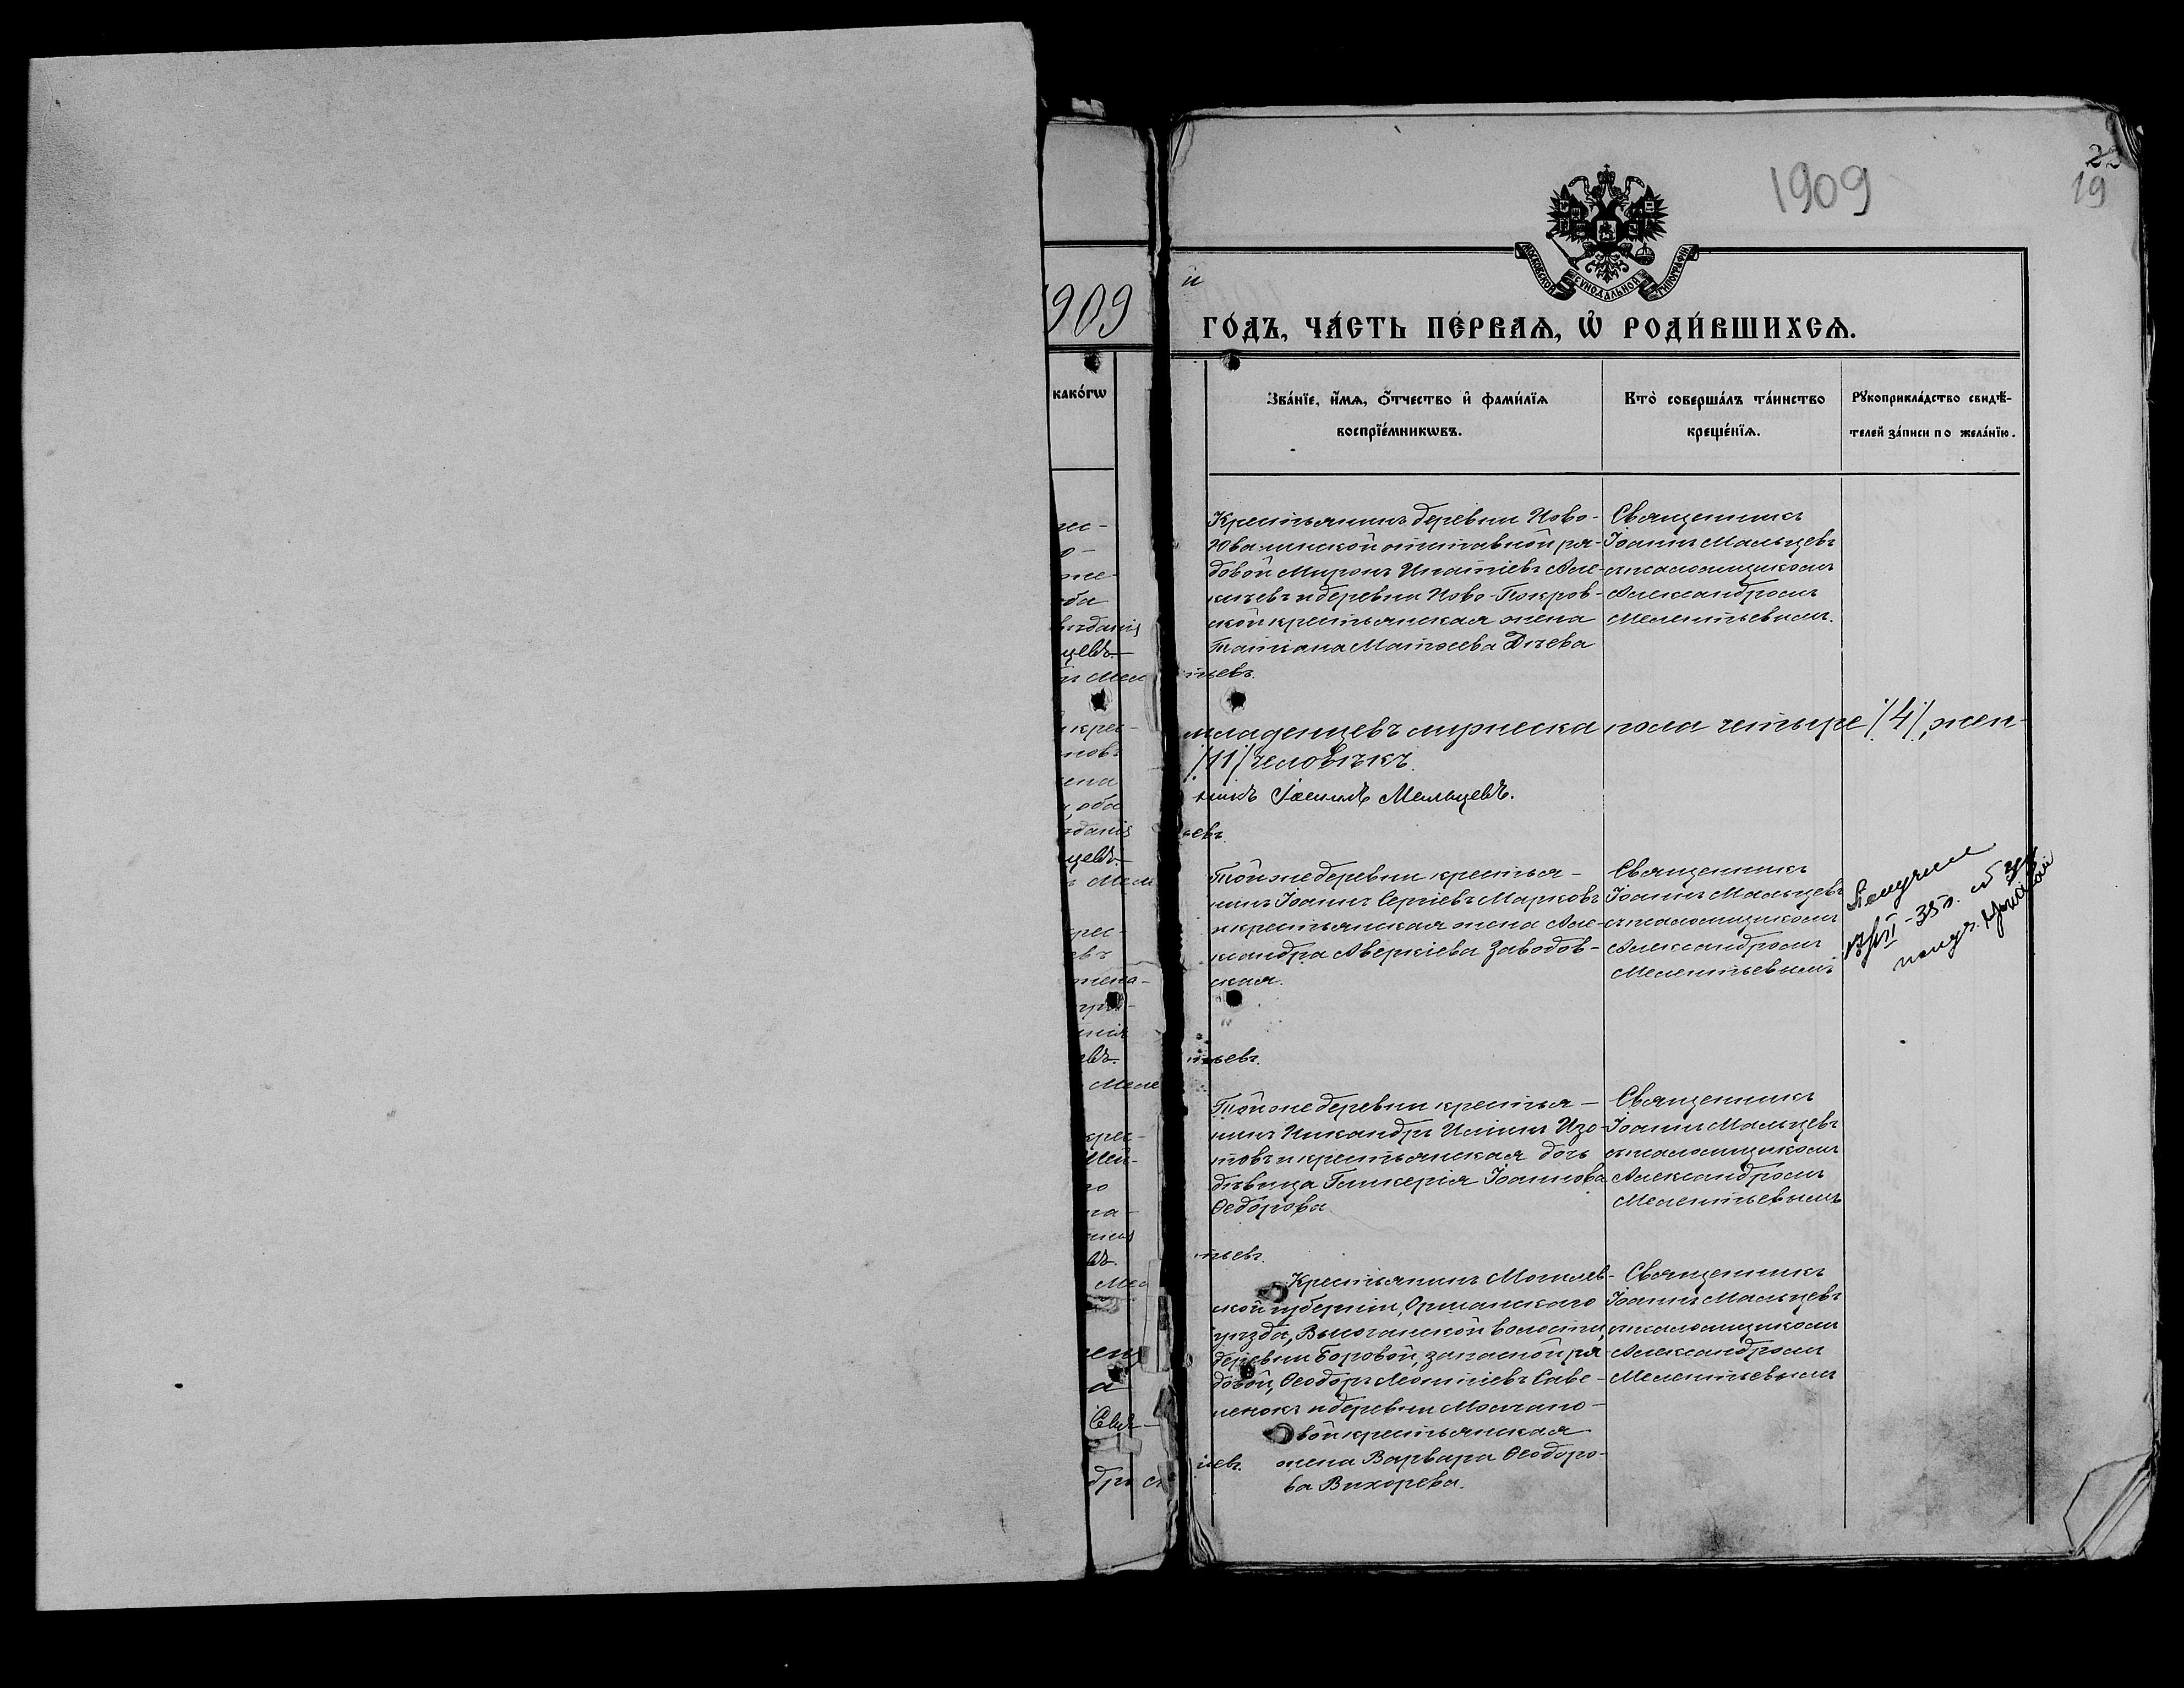 1909
23
19
МОСКОВСКОЙ СѴНОДАЛЬНОЙ ТИПОГРАФІИ
909
и
ГО́ДЪ, ЧА́СТЬ ПЕ́РВАѦ, Ѡ҆ РОДИ́ВШИХСѦ.
како́гѡ
Зва́нїе, и҆́мѧ, ѻ҆́тчество и҆ фами́лїѧ
воспрїе́мникѡвъ.
Кто̀ соверша́лъ та́инство
креще́нїѧ.
Рꙋкоприкла́дство свидѣ́-
телей за́писи по жела́нїю.
Крестьянинъ деревни Ново-
Ювалинской отставной ря-
довой Миронъ Игнатіевъ Але-
ксѣевъ и деревни Ново-Покров-
ской крестьянская жена
Татіана Матѳеева Дѣева
Священникъ
Іоаннъ Мальцевъ
съ псаломщикомъ
Александромъ
Мелентьевымъ.
младенцевъ мужеска пола четыре /4/, жен-
/11/ человѣкъ.
никъ Іоаннъ Мальцевъ.
Той же деревни крестья-
нинъ Іоаннъ Сергіевъ Марковъ
и крестьянская жена Але-
ксандра Аверкіева Заводов-
ская.
Священникъ
Іоаннъ Мальцевъ
съ псаломщикомъ
Александромъ
Мелентьевымъ
тьевъ.
Той же деревни крестья-
нинъ Никандръ Иліинъ Изо-
товъ и крестьянская дочь
дѣвица Гликерія Іоаннова
Ѳедорова.
Священникъ
Іоаннъ Мальцевъ
съ псаломщикомъ
Александромъ
Мелентьевымъ
тьевъ.
Крестьянинъ Могилев-
ской губерніи, Оршанскаго
уѣзда, Высочанской волости,
деревни Боровой, запасной ря-
довой, Ѳеодоръ Леонтіевъ Саве-
ленокъ и деревни Молчано-
вой крестьянская
жена Варвара Ѳеодоро-
ва Вихорева.
Священникъ
Іоаннъ Мальцевъ
съ псаломщикомъ
Александромъ
Мелентьевымъ